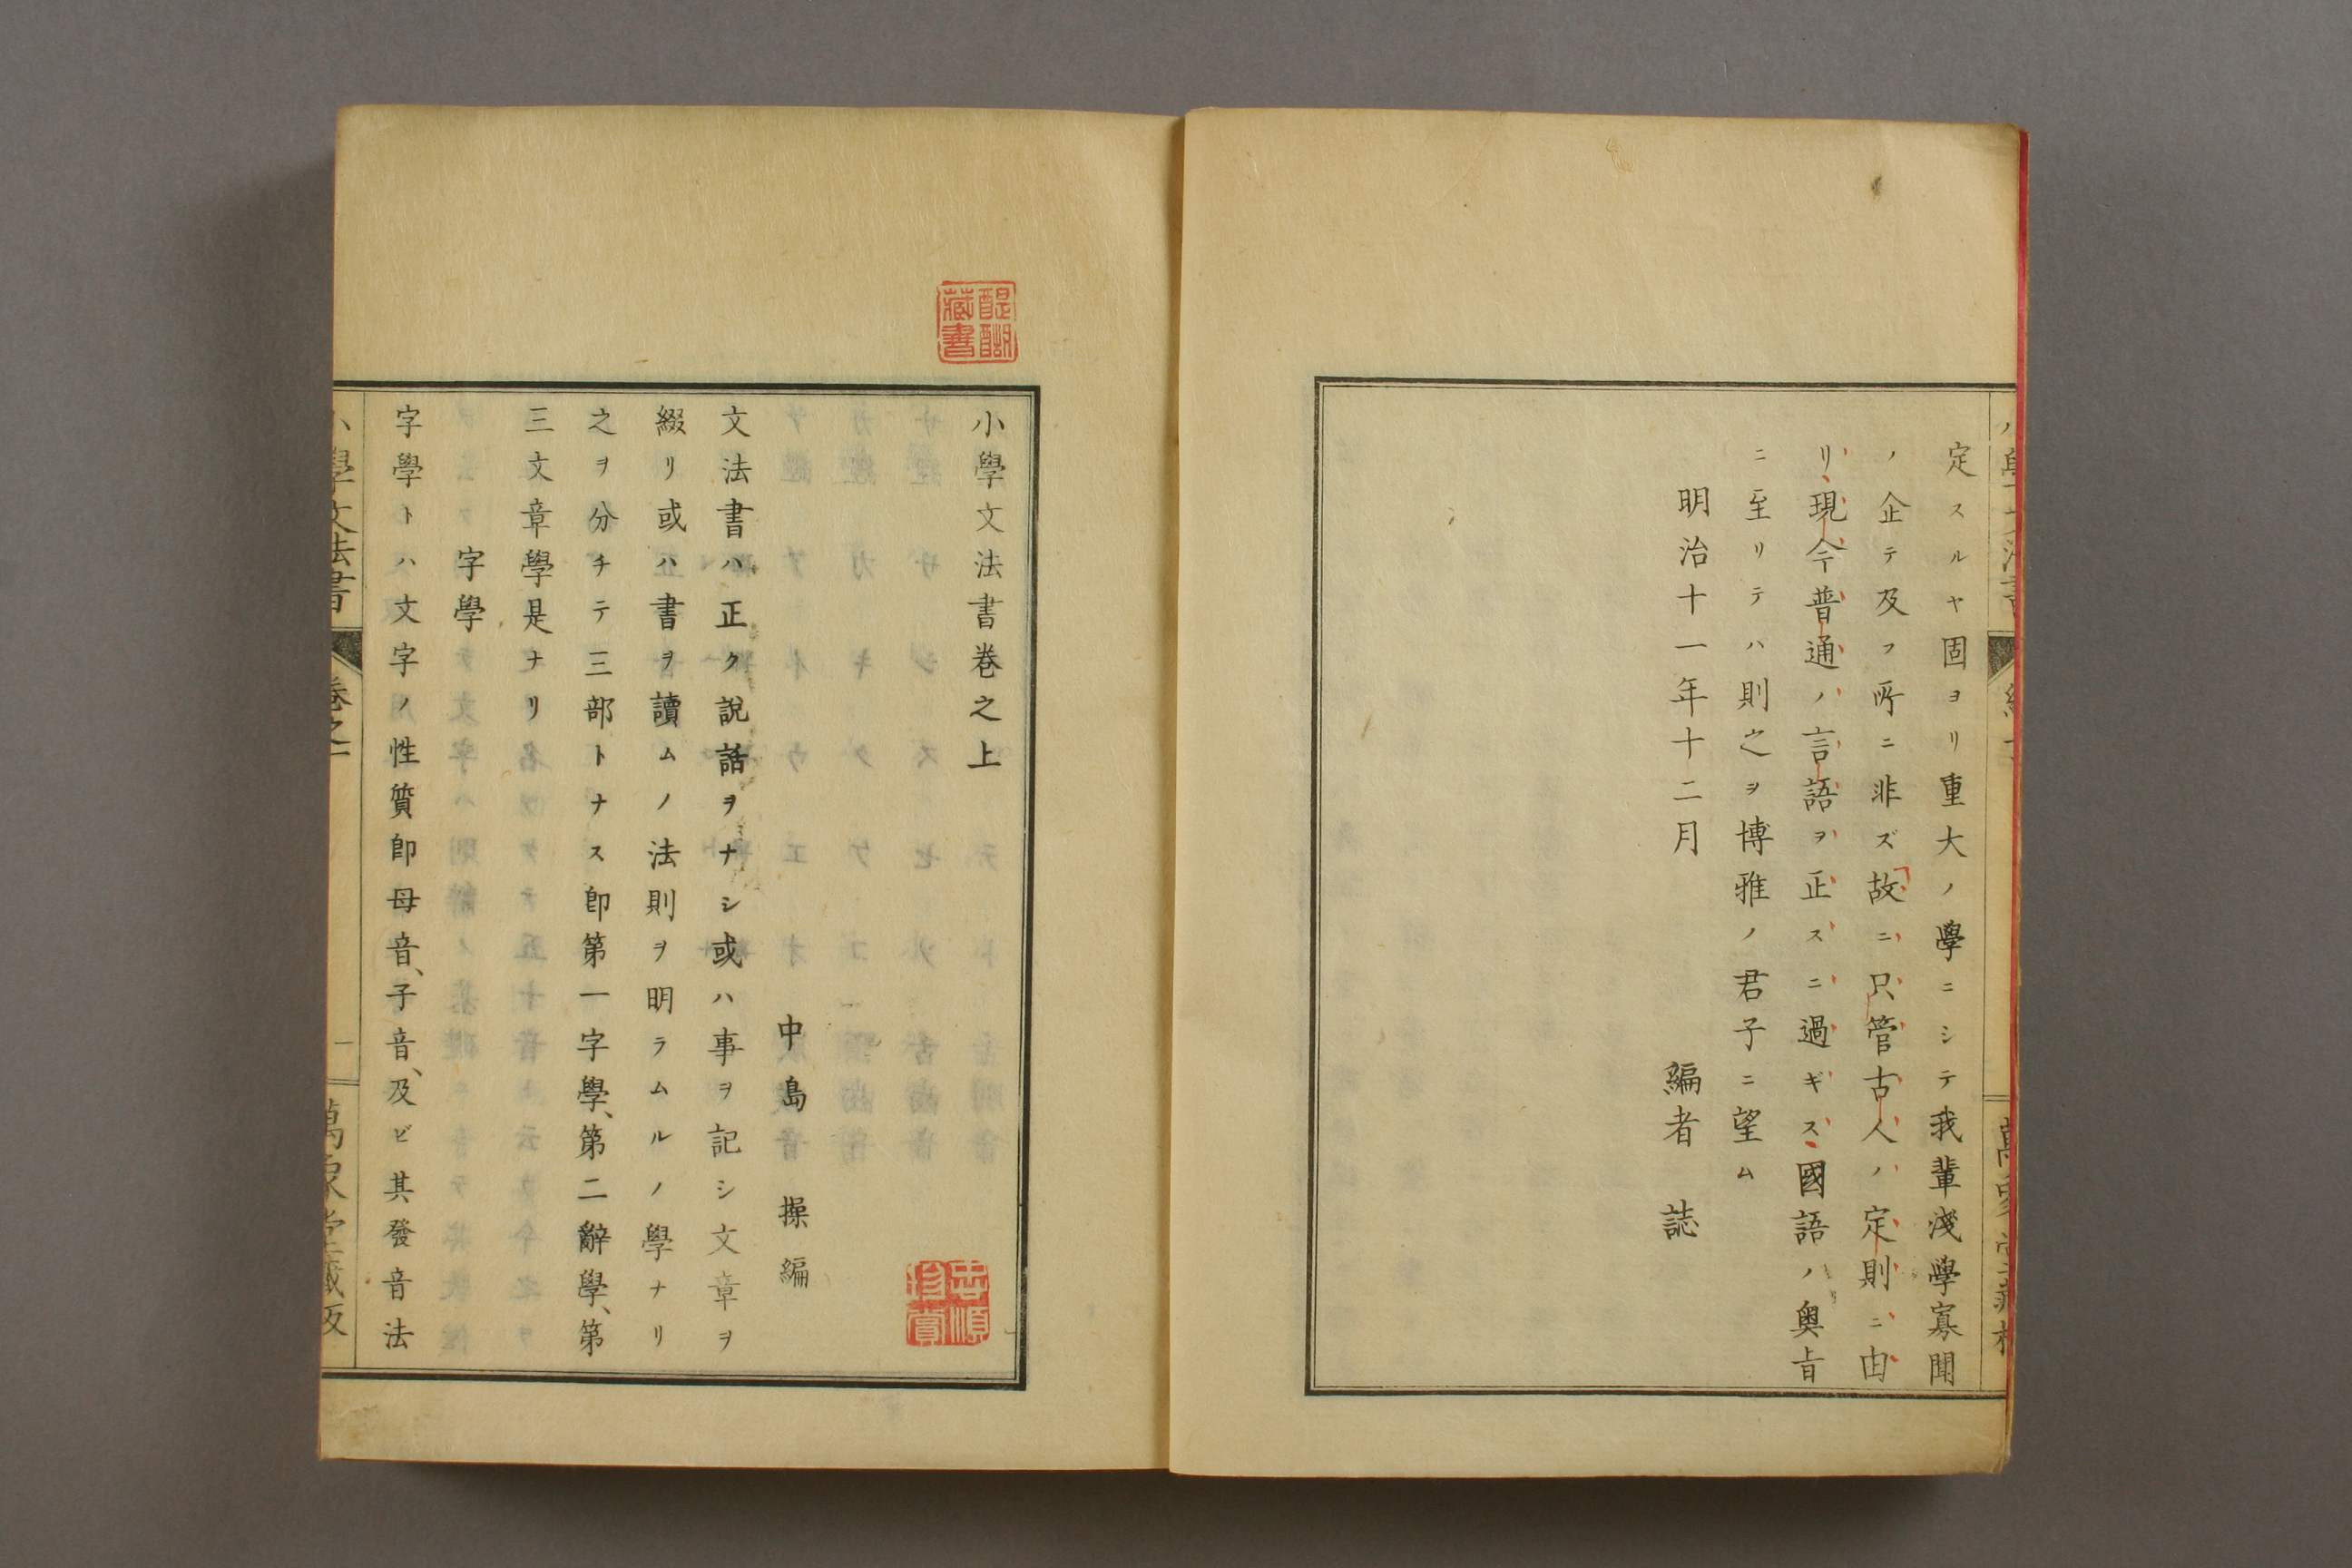 定スルヤ固ヨリ重大ノ學ニシテ我輩淺學寡聞
ノ企テ及フ所ニ非ズ故ニ只管古人ノ定則ニ由
リ、現今普通ノ言語ヲ正スニ過ギス、國語ノ奥旨
ニ至リテハ則之ヲ博雅ノ君子ニ望ム
明治十一年十二月
編者 誌
小學文法書卷之上
中島操編
文法書ハ正ク說話ヲナシ或ハ事ヲ記シ文章ヲ
綴リ或ハ書ヲ讀ムノ法則ヲ明ラムルノ學ナリ
之ヲ分チテ三部トナス卽第一字學、第二辭學、第
三文章學是ナリ
字學
字學トハ文字ノ性質卽母音、子音、及ビ其發音法
小學文法書
卷之上
一
萬象堂藏版
醍醐藏書
忠順珍賞